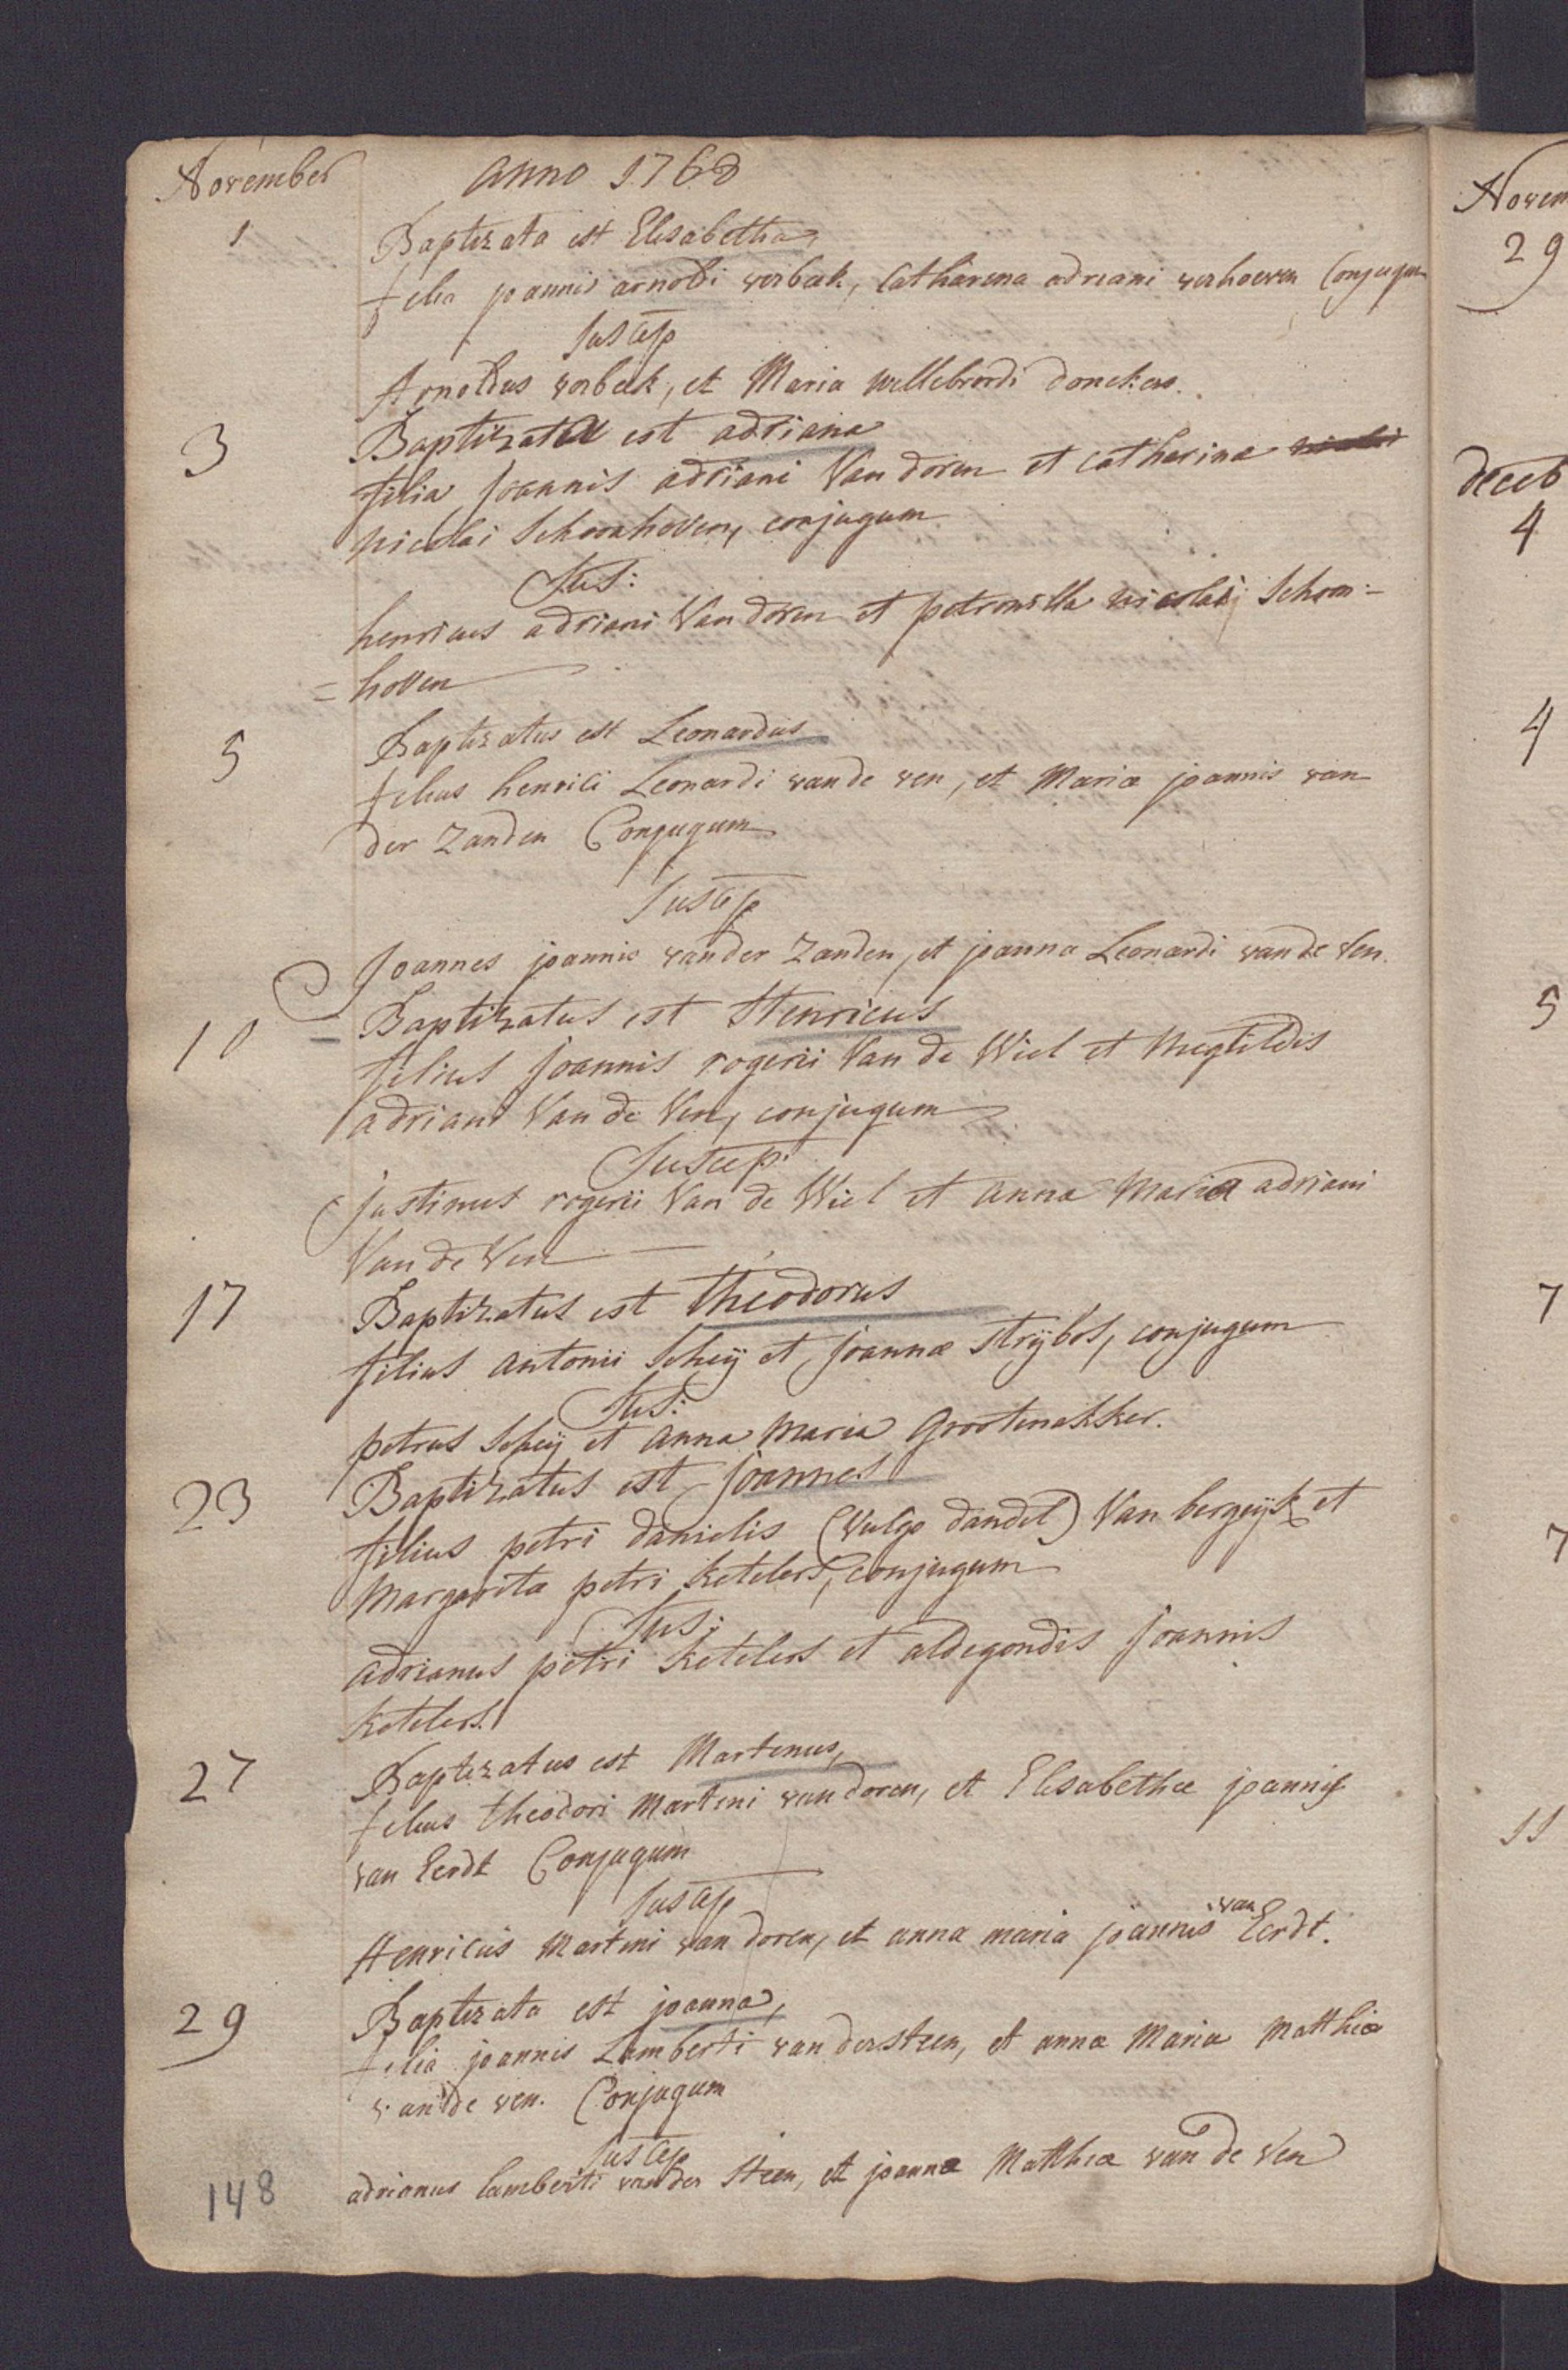 November anno 1768
1 Baptizata est Elisabetha,
filia joannis arnoldi verbeek, Catharina adriani verhoeven Conjugum
suscep
Arnoldus verbeek, et Maria willebrordi donckers.
3 Baptizata est adriana
filia Joannis adriani Van doren et catharina
nicolai Schoonhoven, conjugum
Sus:
henricus adriani Van doren et petronilla nicolai Schoon:
=hoven
5 Baptizatus est Leonardus
filius henrici Leonardi van de ven, et Maria joannis van
der Zanden Conjugum
suscep
Joannes joannis van der Zanden, et joanna Leonardi van de Ven.
10 = Baptizatus est Henricus
filius Joannis rogerii Van de Wiel et Megtildis
adriani Van de Ven, conjugum
Suscep:
justinus rogerii Van de Wiel et anna Maria adriani
Van de Ven
17 Baptizatus est theodorus
filius antonii Scheij et Joannæ strijbos, conjugum
Sus:
petrus Scheij et anna Maria Grootenakker.
23 Baptizatus est Joannes
filius petri danielis (vulgo dandel) Van bergeijk et
Margarita petri Ketelers, conjugum
Sus:
adrianus petri Ketelers et aldegondis Joannis
Ketelers.
27 Baptizatus est Martinus,
filius theodori Martini van doren, et Elisabethæ joannis
van Eerdt Conjugum
suscep
Henricus Martini van doren, et anna maria joannis van Eerdt.
29 Baptizata est joanna,
filia joannis Lamberti van der steen, et anna Maria Matthiæ
van de ven. Conjugum
suscep
adrianus lamberti van der Steen, et joanna Matthiæ van de Ven
148
Novem
29
deceb
4
4
5
7
7
11